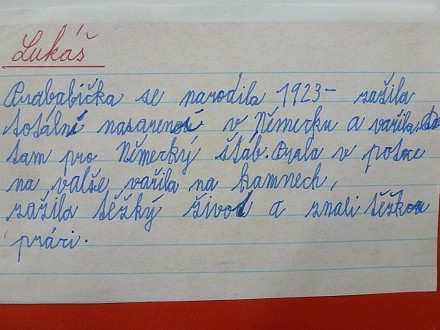 Lukáš
Prababička se narodila 1923 - zažila
totální nasazení v Německu a vařila
tam pro Německý štáb. Prala v potoce
na valše, vařila na kamnech,
zažila těžký život a znali těžkou
práci.